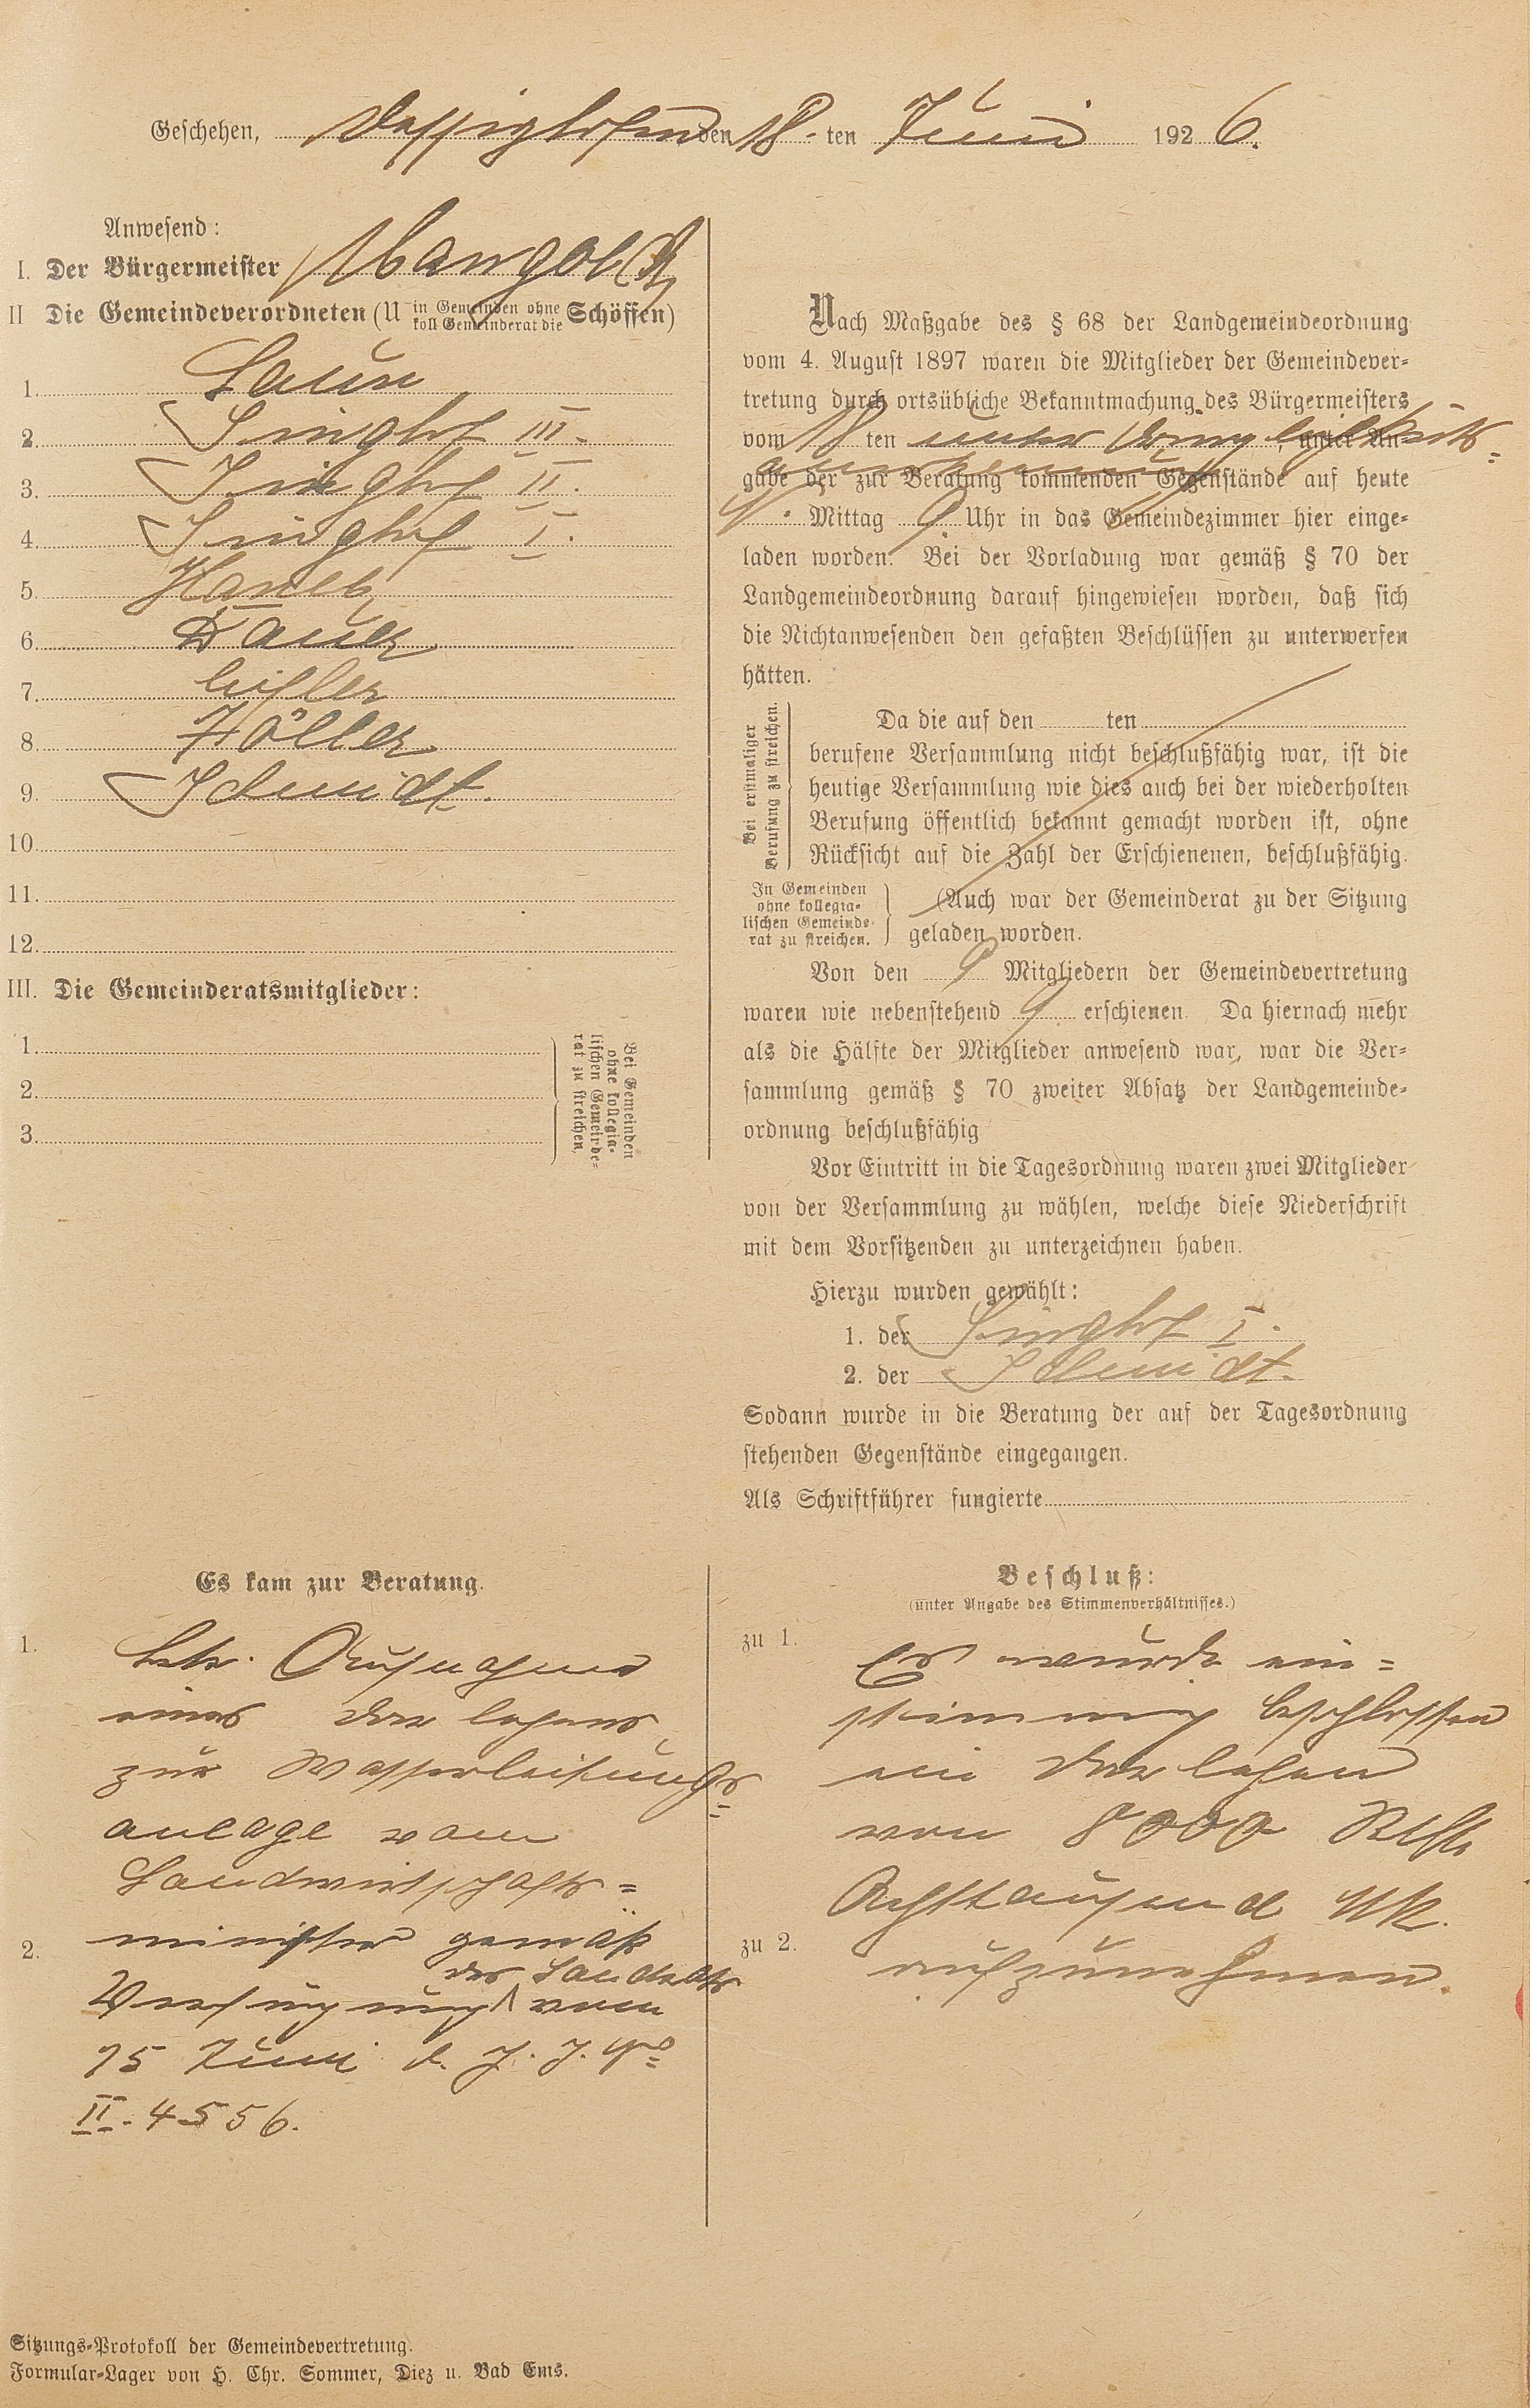 Geschehen, Dessighofen den 18. ten Juni 1926.
Anwesend:
I. Der Bürgermeister Mangold
II Die Gemeindeverordneten (U in Gemeinden ohne koll Gemeinderat die Schöffen)
1. Laun
2. Singhof III.
3. Singhof II.
4. Singhof I.
5.
6. Bauer
7.
8. Höller
9. Schmidt.
10.
11.
12.
III. Die Gemeinderatsmitglieder:
1.
2.
3.
Bei Gemeinden
ohne kollegia-
lischen Gemeinde-
rat zu streichen.
Nach Maßgabe des § 68 der Landgemeindeordnung
vom 4. August 1897 waren die Mitglieder der Gemeindever-
tretung durch ortsübliche Bekanntmachung des Bürgermeisters
vom 18 ten unter Dringlichkeits-, unter An-
gabe der zur Beratung kommenden Gegenstände auf heute
N. Mittag 9 Uhr in das Gemeindezimmer hier einge-
laden worden. Bei der Vorladung war gemäß § 70 der
Landgemeindeordnung darauf hingewiesen worden, daß sich
die Nichtanwesenden den gefaßten Beschlüssen zu unterwerfen
hätten.
Bei erstmaliger
Berufung zu streichen.
Da die auf den ten
berufene Versammlung nicht beschlußfähig war, ist die
heutige Versammlung wie dies auch bei der wiederholten
Berufung öffentlich bekannt gemacht worden ist, ohne
Rücksicht auf die Zahl der Erschienenen, beschlußfähig.
In Gemeinden
ohne kollegia-
lischen Gemeinde-
rat zu streichen.
(Auch war der Gemeinderat zu der Sitzung
geladen worden.
Von den 9 Mitgliedern der Gemeindevertretung
waren wie nebenstehend 9 erschienen. Da hiernach mehr
als die Hälfte der Mitglieder anwesend war, war die Ver-
sammlung gemäß § 70 zweiter Absatz der Landgemeinde-
ordnung beschlußfähig
Vor Eintritt in die Tagesordnung waren zwei Mitglieder
von der Versammlung zu wählen, welche diese Niederschrift
mit dem Vorsitzenden zu unterzeichnen haben.
Hierzu wurden gewählt:
1. der Singhof I.
2. der Schmidt.
Sodann wurde in die Beratung der auf der Tagesordnung
stehenden Gegenstände eingegangen.
Als Schriftführer fungierte
Es kam zur Beratung.
1. betr. Aufnahme
eines Darlehens
zur Wasserleitungs-
anlage vom
Landwirtschafts-
2. minister gemäß
des Landrats
Verfügung vom
15 Juni d. J. J. No
II. 4556.
Beschluß:
(unter Angabe des Stimmenverhältnisses.)
zu 1. Es wurde ein-
stimmig beschlossen
ein Darlehen
von 8000 RMk
Achttausend Mk.
zu 2. aufzunehmen.
Sitzungs-Protokoll der Gemeindevertretung.
Formular-Lager von H. Chr. Sommer, Diez u. Bad Ems.